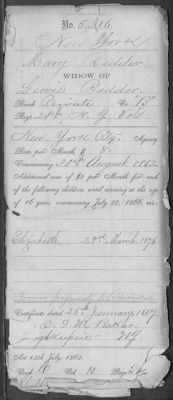 No. 5,416.
New York.
Mary Bedder
WIDOW OF
Lewis Bedder.
Rank Private Co.
Regt 28th N. Y. Vols
New York City. Agency
Rate per Month, $ 8.
Commencing 21st August 1862.
Additional sum of $2 per Month for each
of the following children, until arriving at the age
of 16 years, commencing July 25, 1866, viz:
Elizabeth 28th March, 1876
Certificate dated 25th January, 1867
Act 14th July, 1862.
Book Vol. 10 Page